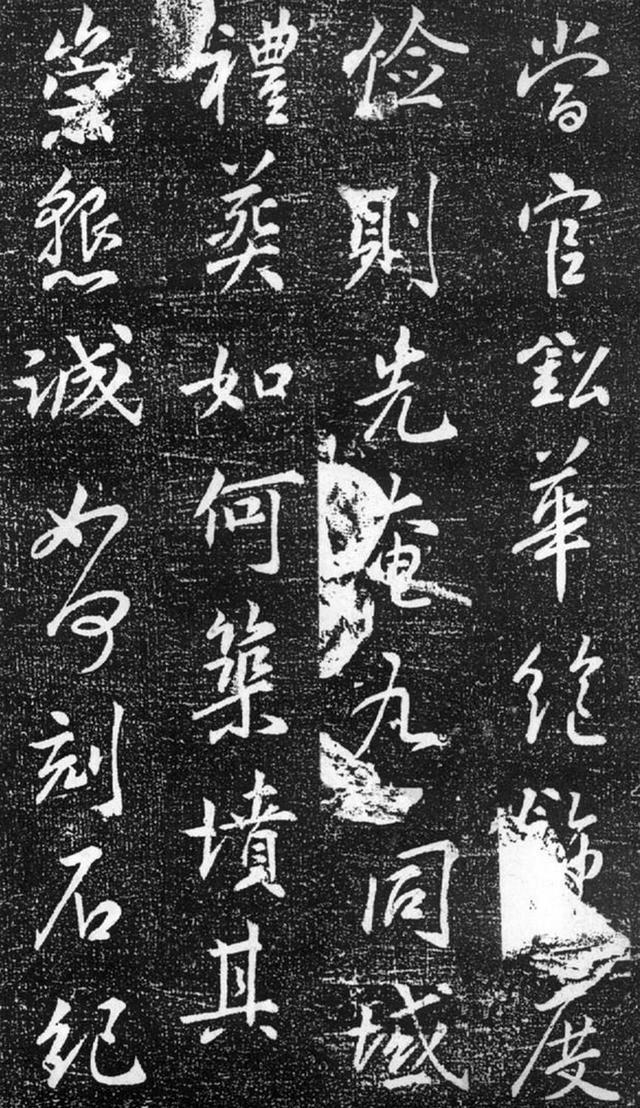 當官鈆華絶飾度
儉則先奄九同域
禮葬如何築墳其
崇懇誠如何刻石紀